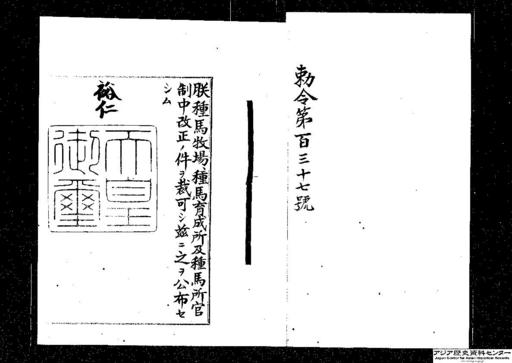 勅令第百三十七號
朕種馬牧場、種馬育成所及種馬所官
制中改正ノ件ヲ裁可シ茲ニ之ヲ公布セ
シム
裕仁
天皇
御璽
アジア歴史資料センター
Japan Center for Asian Historical Records